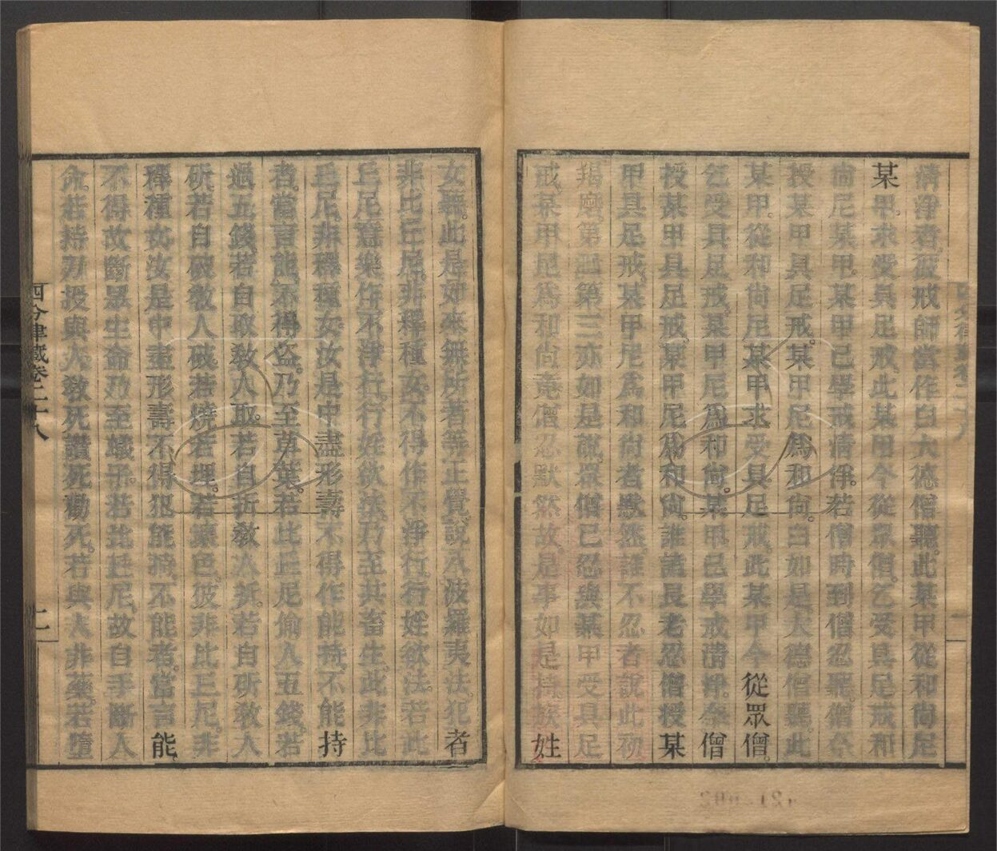 清淨者。受戒師當作白大德僧聽。此某甲從和尚尼
某甲。求受具足戒此某甲今從眾僧。乞受具足戒和
尚尼某甲。某甲已學戒清淨。若僧時到僧忍聽。僧今
授某甲具足戒。某甲尼爲和尚。白如是。大德僧聽。此
某甲。從和尚尼某甲。求受具足戒此某甲今從眾僧。
乞受具足戒。某甲尼爲和尚。某甲已學戒清淨。今僧
授某甲具足戒。某甲尼爲和尚。誰諸長老忍僧授某
甲具足戒。某甲尼爲和尚者默然。誰不忍者說此初
羯磨。第二第三亦如是說。眾僧已忍與某甲受具足
戒。某甲尼爲和尚竟。僧忍默然故。是事如是持族姓
女聽。此是如來無所著等正覺說八波羅夷法。犯者
非比丘尼。非釋種女。不得作不淨行。行婬欲法。若比
丘尼意樂作不淨行。行婬欲法。乃至共畜生。此非比
丘尼。非釋種女。汝是中盡形壽不得作。能持不。能持
者。當言能。不得盜。乃至草葉。若比丘尼偷人五錢。若
過五錢。若自取教人取。若自斫教人斫。若自破教人
破。若燒若埋。若壞色。彼非比丘尼。非
釋種女汝是中盡形壽不得犯能持不能者。當言能
不得故斷眾生命乃至蟻子。若比丘尼。故自手斷人
命。若持刀授與人。教死讚死勸死。若與人非藥。若墮
四分律藏卷二十八
二